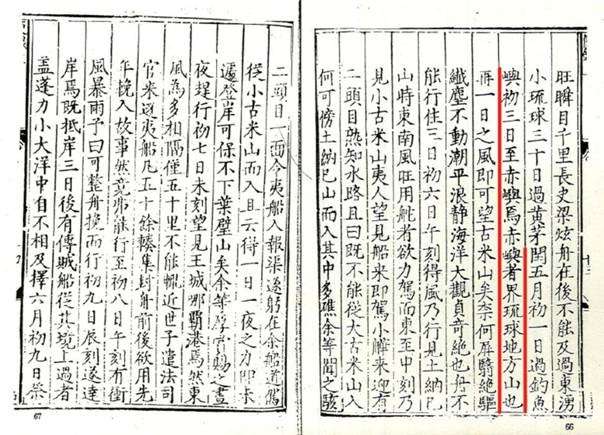 旺瞬目千里長史梁炫舟在後不能及過東湧
小琉球三十日過黃茅閏五月初一日過釣魚
嶼初三日至赤嶼焉赤嶼者界琉球地方山也
再一日之風即可望古米山矣奈何屏翳絕驅
纖塵不動潮平浪靜海洋大觀真奇絕也舟不
能行住三日初六日午刻得風乃行見土納巳
山時東南風旺用舵者欲力駕而東至申刻乃
見小古米山夷人望見船來即駕小來迎有
二頭目熟知水路且曰既不能從大古米山入
何可傍土納巳山而入其中多礁余等聞之駭
66
二頭目一面令夷船入報渠遂躬在余船道駕
從小古米山而入且云得一日一夜之力即未
遽登岸可保不下葉壁山矣余等厚賞賜之晝
夜趕行初七日未刻望見王城那覇港焉然東
風為多相隔僅五十里不能輒近世子遣法司
官來迎夷船凡五十餘輳集封舟前後欲用先
年挽入故事然竟弗能行至初八日午刻有衝
風暴雨予曰可整舟挽而行初九日辰刻遂達
岸焉既抵岸三日後有傳賊船從其境上過者
蓋蓬力小大洋中自不相及擇六月初九日祭
67